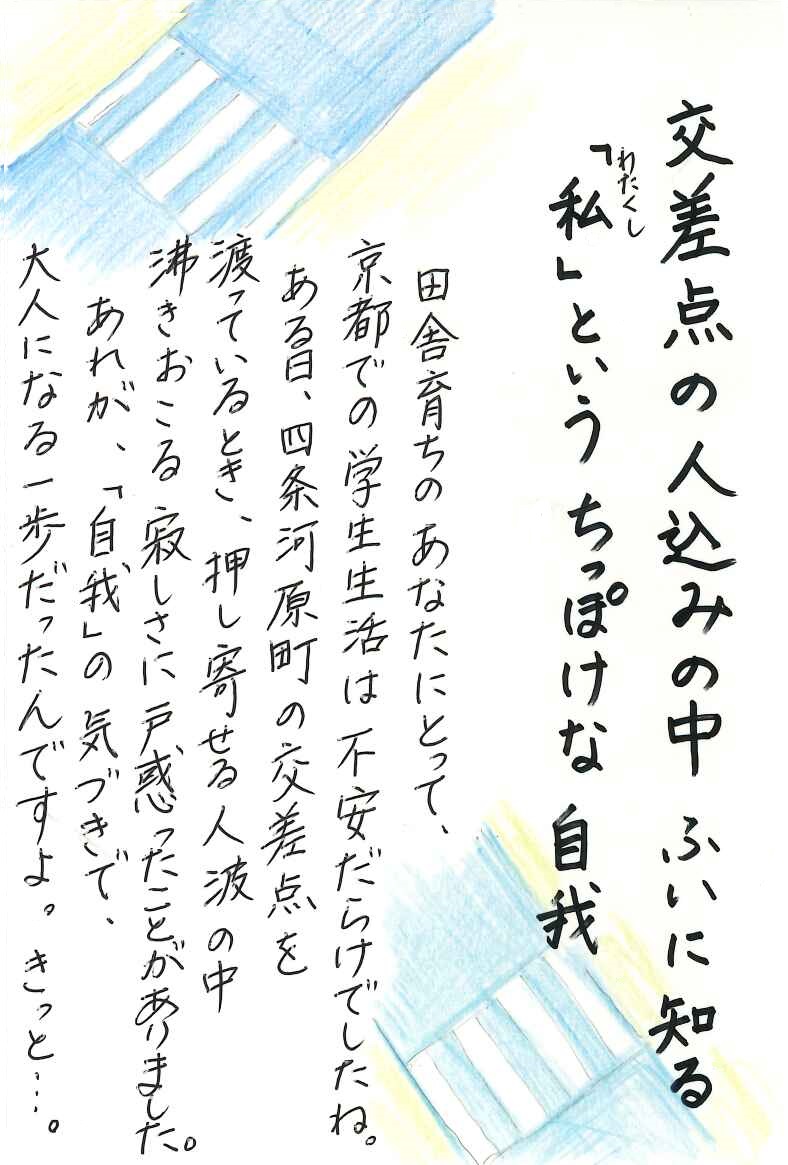 交差点の人込みの中 ふいに知る
「私」という ちっぽけな 自我
わたくし
田舎育ちの あなたにとって、
京都での 学生生活は 不安だらけでしたね。
ある日、四条河原町の交差点を
渡っているとき、押し寄せる人波の中
沸きおこる 寂しさに 戸惑ったことがありました。
あれが、「自我」の 気づきで、
大人になる 一歩だったんですよ。 きっと…。